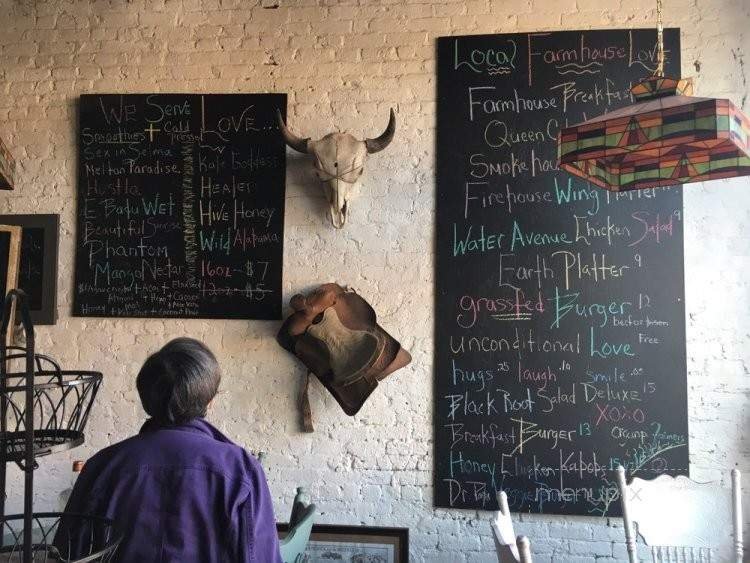 We Serve
Smoothies + Cold Pressed
Sex in Selma
Meltan Paradise
Hustla
E Batu Wet
Beautiful Sunrise
Phantom
Mango Nectar
Honey
Love...
Kale Goddess
Healer
Hive Honey
Wild Alabama
16oz - $7
12oz - $5
Local Farmhouse Love
Farmhouse Breakfast
Queen
Smokehou
Firehouse Wing Platter
Water Avenue Chicken Salad 9
Earth Platter 9
grassfed Burger 12
unconditional Love Free
hugs .25 laugh .10 smile .05
Black Root Salad Deluxe 15
XOXO
Breakfast Burger 13
Honey Chicken Kabobs 15
menupix